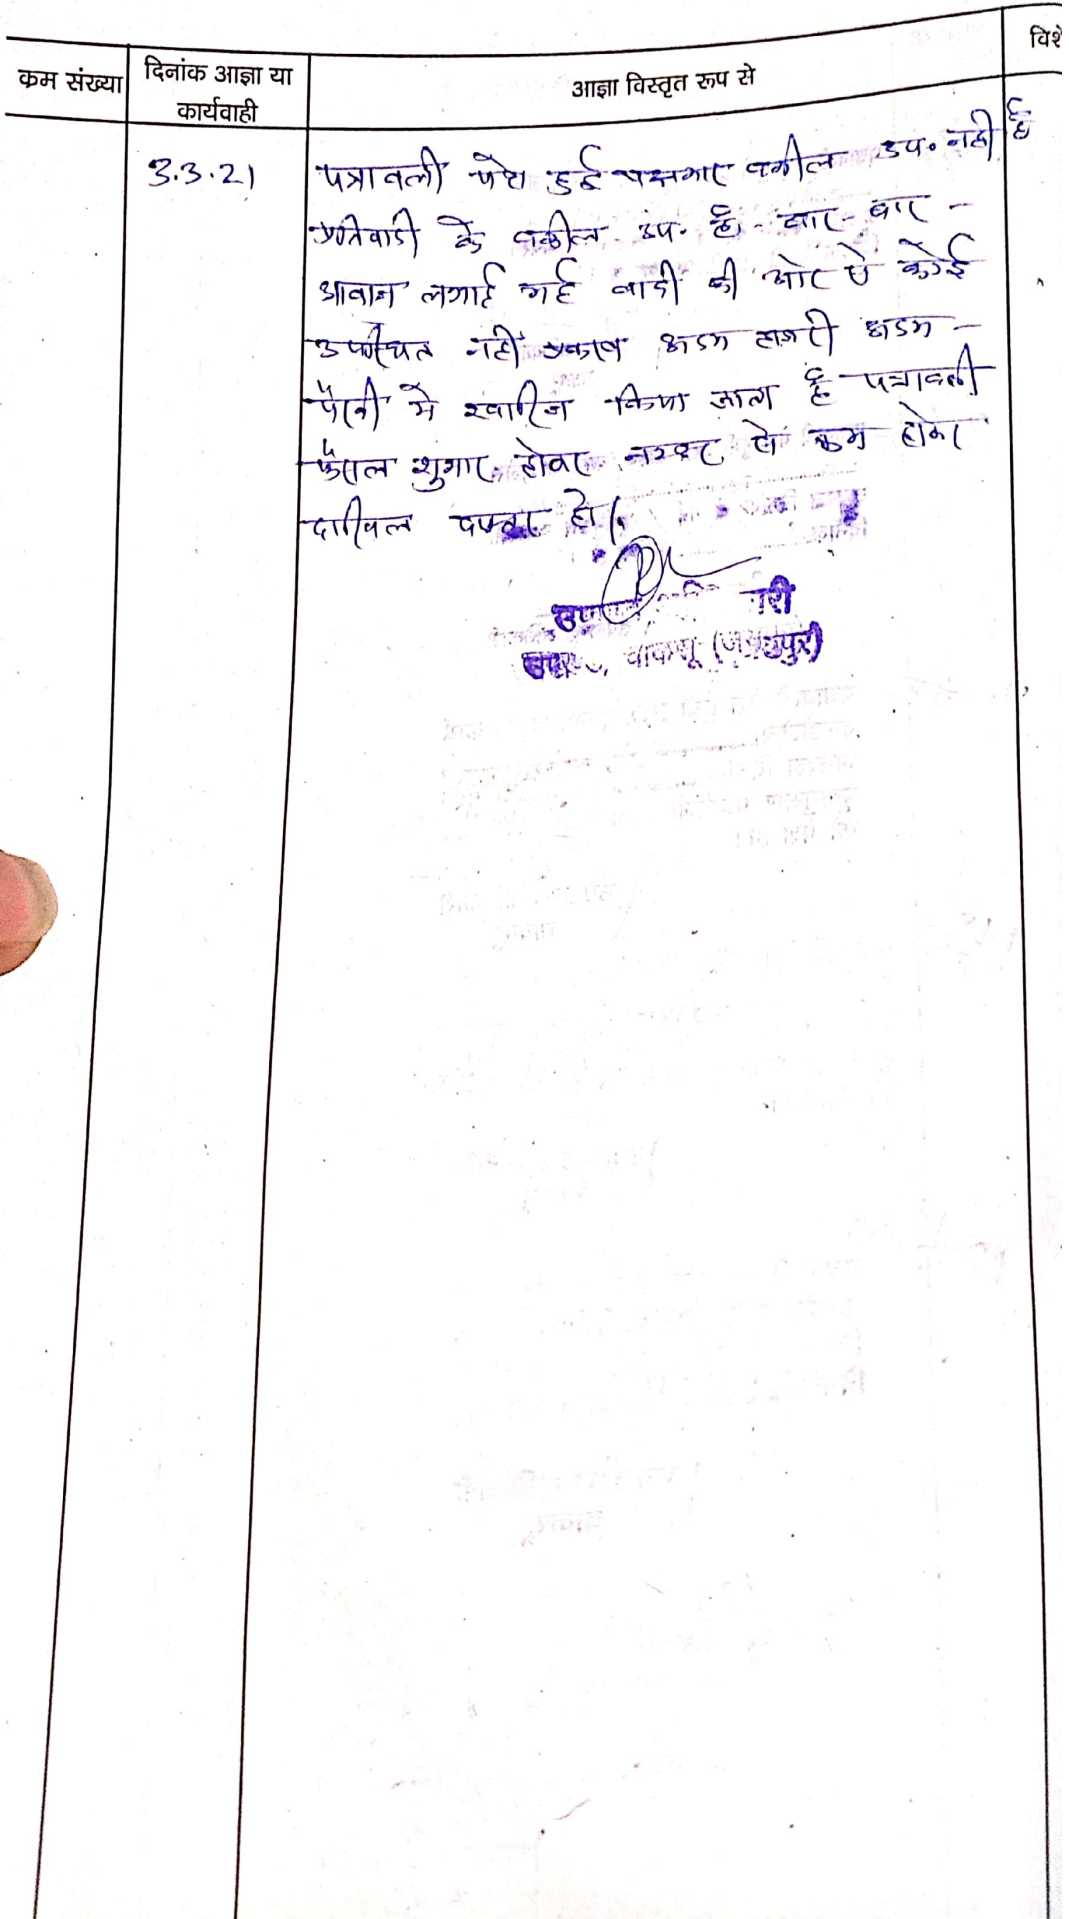 क्रम संख्या
दिनांक आज्ञा या
कार्यवाही
आज्ञा विस्तृत रूप से
विशे
3.3.21
पत्रावली पेश हुई वकील उप. नही है
प्रतिवादी के वकील उप. है. बार-बार -
आवाज लगाई गई वादी की ओर से कोई
उपस्थित नही अदम हाजरी अदम -
पैरवी मे खारिज किया जाता है पत्रावली
फैसल शुमार होकर नम्बर से कम होकर
दाखिल दफ्तर हो।
चाकसू (जयपुर)